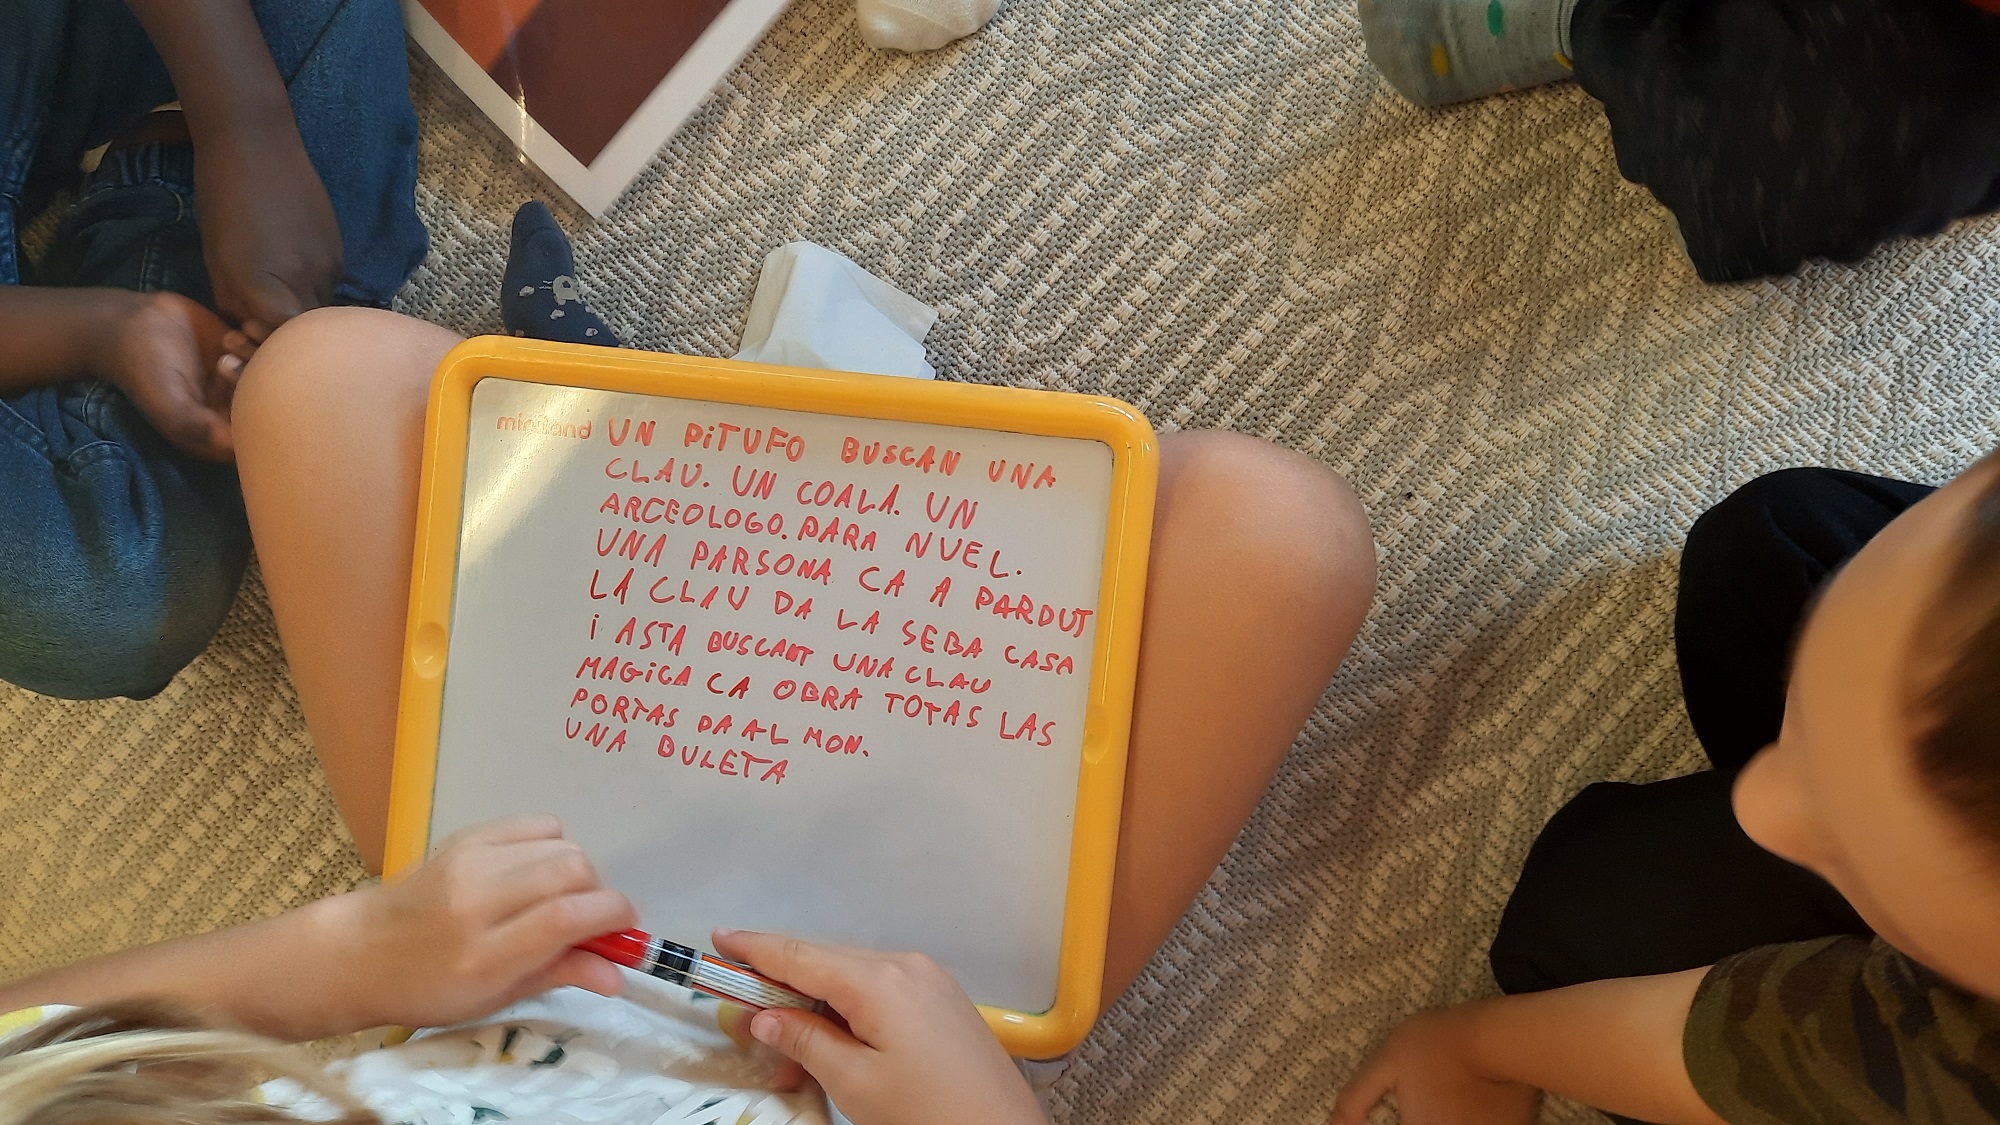 miniland
UN PiTUFO BUSCAN UNA
CLAU. UN COALA. UN
ARCEOLOGO. PARA NUEL.
UNA PARSONA CA A PARDUT
LA CLAU DA LA SEBA CASA
i ASTA BUSCANT UNA CLAU
MAGiCA CA OBRA TOTAS LAS
PORTAS DA AL MON.
UNA BULETA